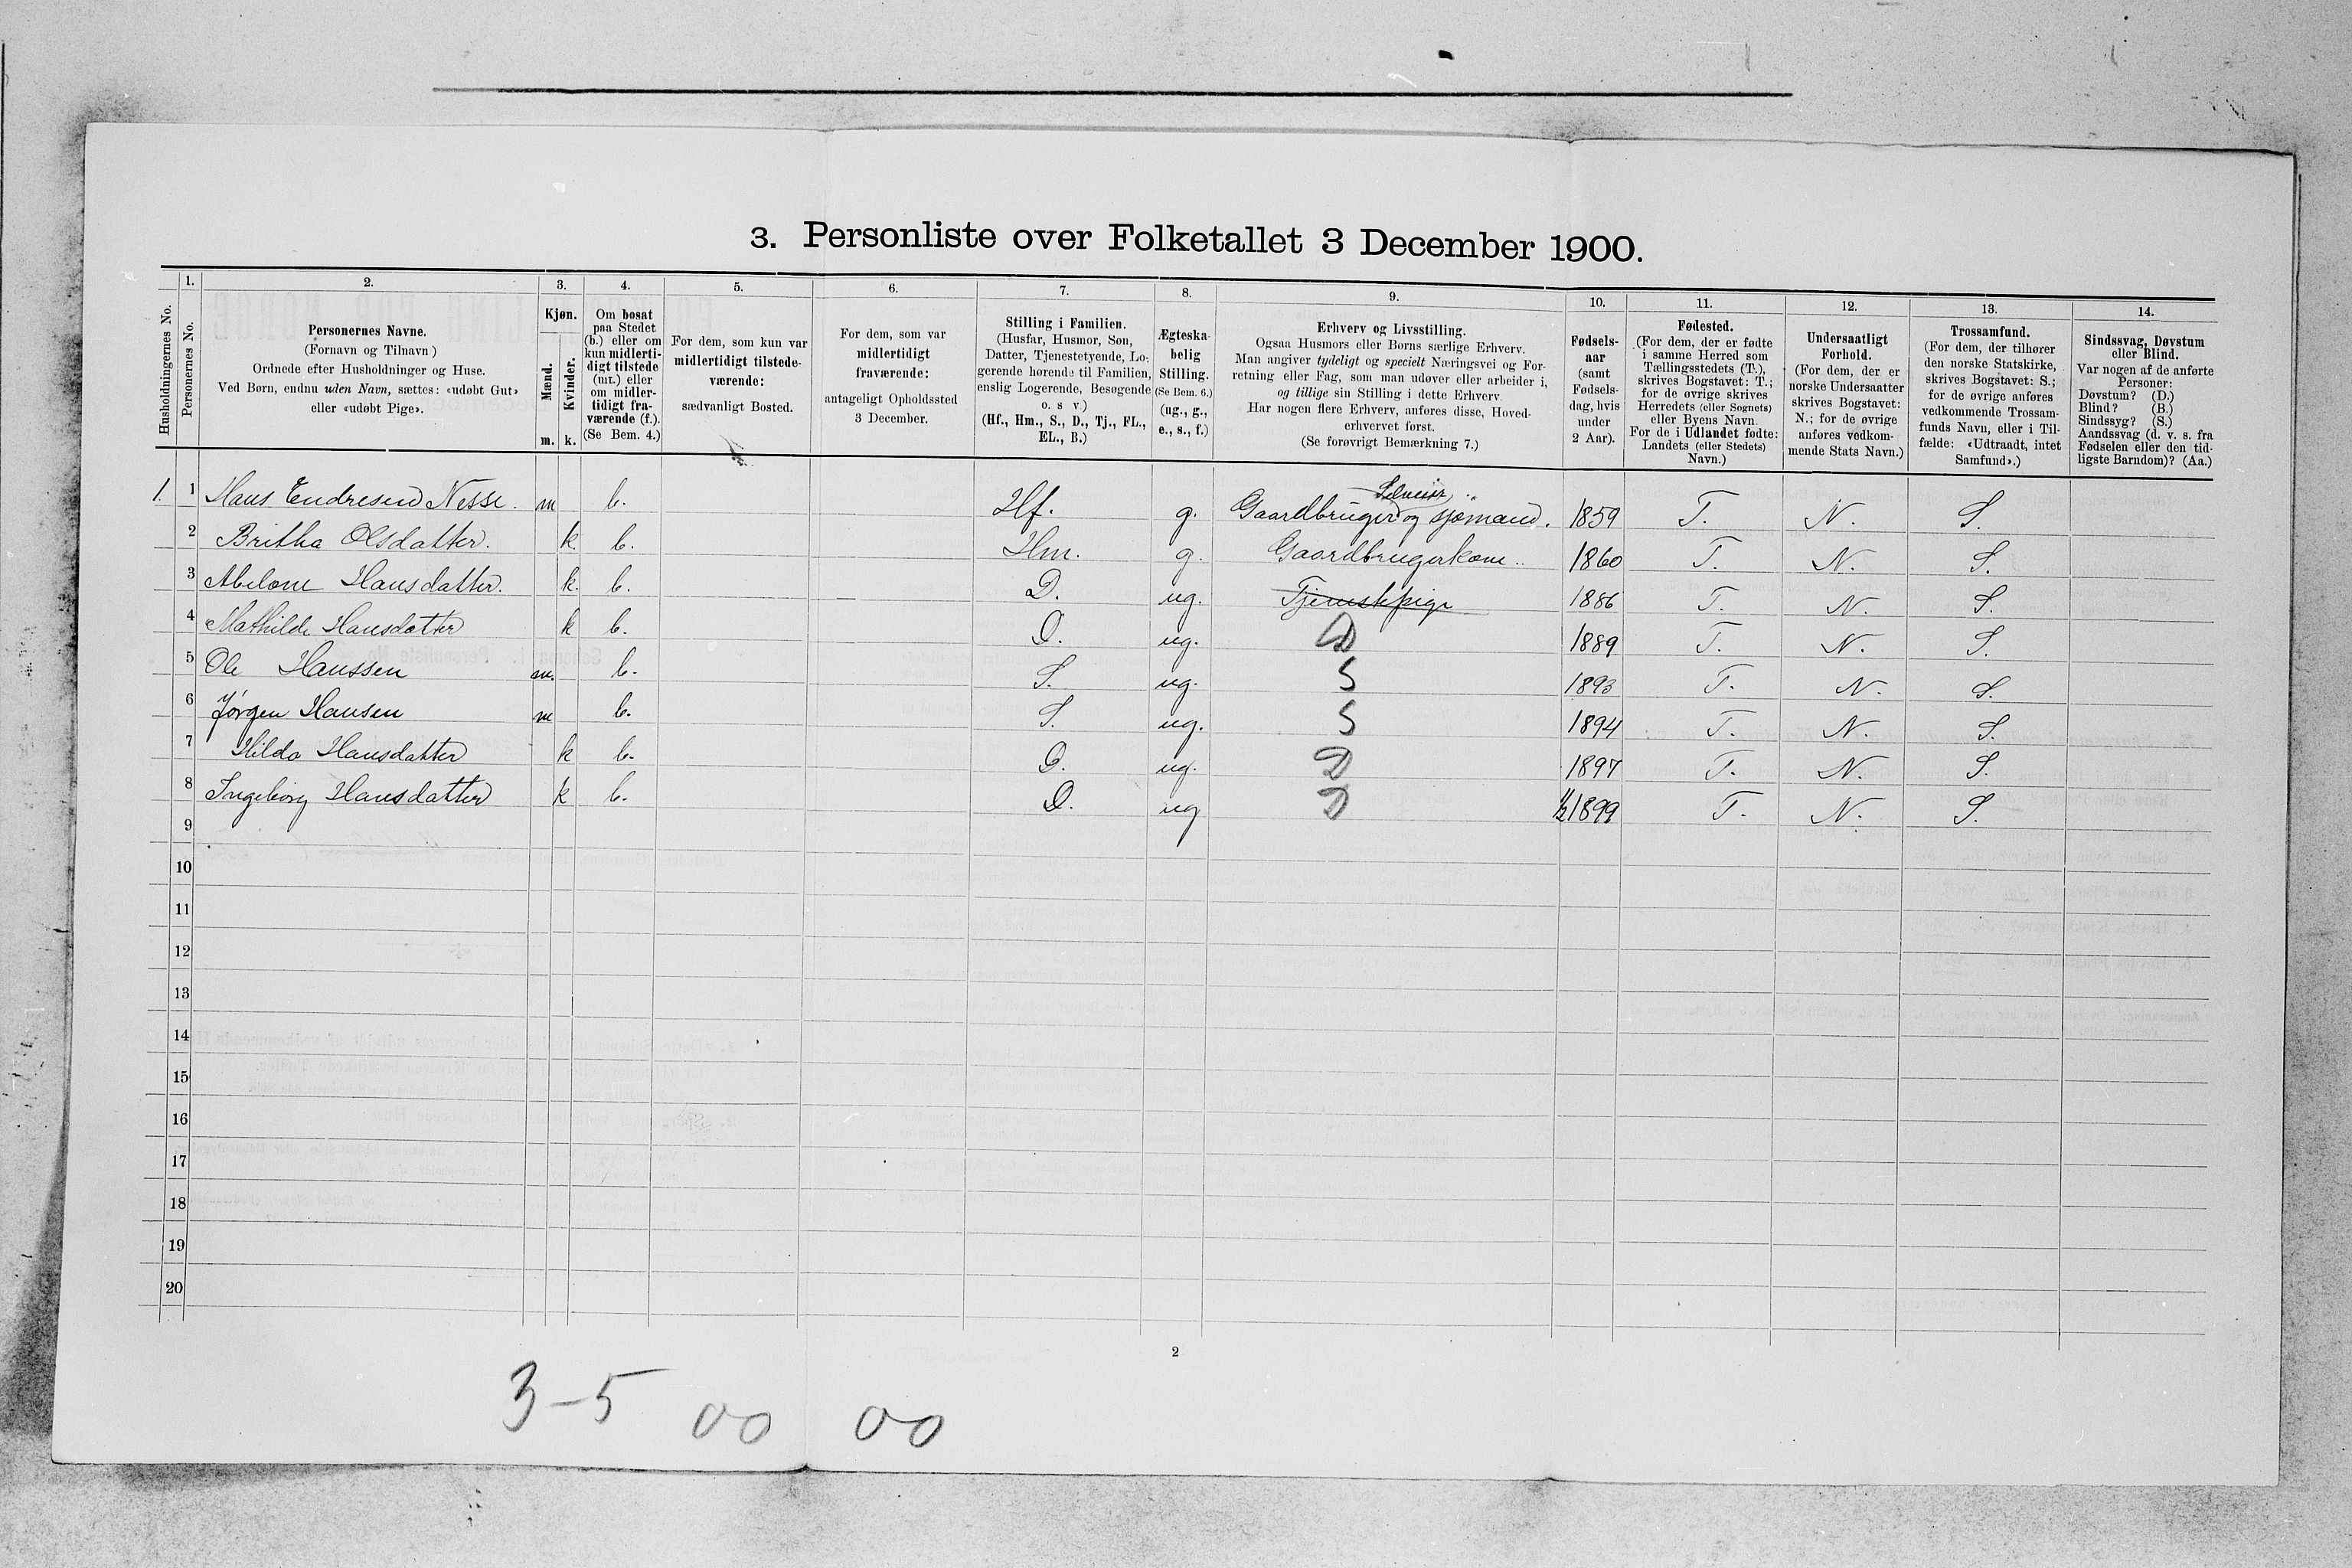 3. Personliste over Folketallet 3 December 1900.
1. 2. 3. 4. 5. 6. 7. 8. 9. 10. 11. 12. 13. 14.
Husholdningernes No.
Personernes No.
Personernes Navne.
(Fornavn og Tilnavn.)
Ordnede efter Husholdninger og Huse.
Ved Børn, endnu uden Navn, sættes: «udøbt Gut»
eller «udøbt Pige».
Kjøn.
Mænd.
Kvinder.
m. k.
Om bosat
paa Stedet
(b.) eller om
kun midlerti-
digt tilstede
(mt.) eller
om midler-
tidigt fra-
værende (f.).
(Se Bem. 4.)
For dem, som kun var
midlertidigt tilstede-
værende:
sædvanligt Bosted.
For dem, som var
midlertidigt
fraværende:
antageligt Opholdssted
3 December.
Stilling i Familien.
(Husfar, Husmor, Søn,
Datter, Tjenestetyende, Lo-
gerende hørende til Familien,
enslig Logerende, Besøgende
o. s v.)
(Hf., Hm., S., D., Tj., FL.,
EL., B.)
Ægteska-
belig
Stilling.
(Se Bem. 6.)
(ug., g.,
e., s., f.)
Erhverv og Livsstilling.
Ogsaa Husmors eller Børns særlige Erhverv.
Man angiver tydeligt og specielt Næringsvei og For-
retning eller Fag, som man udøver eller arbeider i,
og tillige sin Stilling i dette Erhverv.
Har nogen flere Erhverv, anføres disse, Hoved-
erhvervet først.
(Se forøvrigt Bemærkning 7.)
Fødsels-
aar
(samt
Fødsels-
dag, hvis
under
2 Aar).
Fødested.
(For dem, der er fødte
i samme Herred som
Tællingsstedets (T.),
skrives Bogstavet: T.;
for de øvrige skrives
Herredets (eller Sognets)
eller Byens Navn.
For de i Udlandet fødte:
Landets (eller Stedets)
Navn.)
Undersaatligt
Forhold.
(For dem, der er
norske Undersaatter
skrives Bogstavet:
N.; for de øvrige
anføres vedkom-
mende Stats Navn.)
Trossamfund.
(For dem, der tilhører
den norske Statskirke,
skrives Bogstavet: S.;
for de øvrige anføres
vedkommende Trossam-
funds Navn, eller i Til-
fælde: «Udtraadt, intet
Samfund».)
Sindssvag, Døvstum
eller Blind.
Var nogen af de anførte
Personer:
Døvstum? (D.)
Blind? (B.)
Sindssyg? (S.)
Aandssvag (d. v. s. fra
Fødselen eller den tid-
ligste Barndom)? (Aa.)
Selveier
1. 1 Hans Endresen Nesse. m b. Hf. g. Gaardbruger og sjømand. 1859 T. N. S.
2 Britha Olsdatter. k. b. Hm. g. Gaardbrugerkone. 1860 T. N. S.
3 Abelone Hansdatter. k. b. D. ug. Tjenestepige 1886 T. N. S.
4 Mathilde Hansdatter k b. D. ug. D 1889 T. N. S.
5 Ole Hanssen m. b. S. ug. S 1893 T. N. S.
6 Jørgen Hansen m b. S. ug. S 1894 T. N. S.
7 Hilda Hansdatter k b. D. ug. D 1897 T. N. S.
8 Ingeborg Hansdatter k b. D. ug D 1899 T. N. S.
9
10
11
12
13
14
15
16
17
18
19
20
2
3-5 00 00